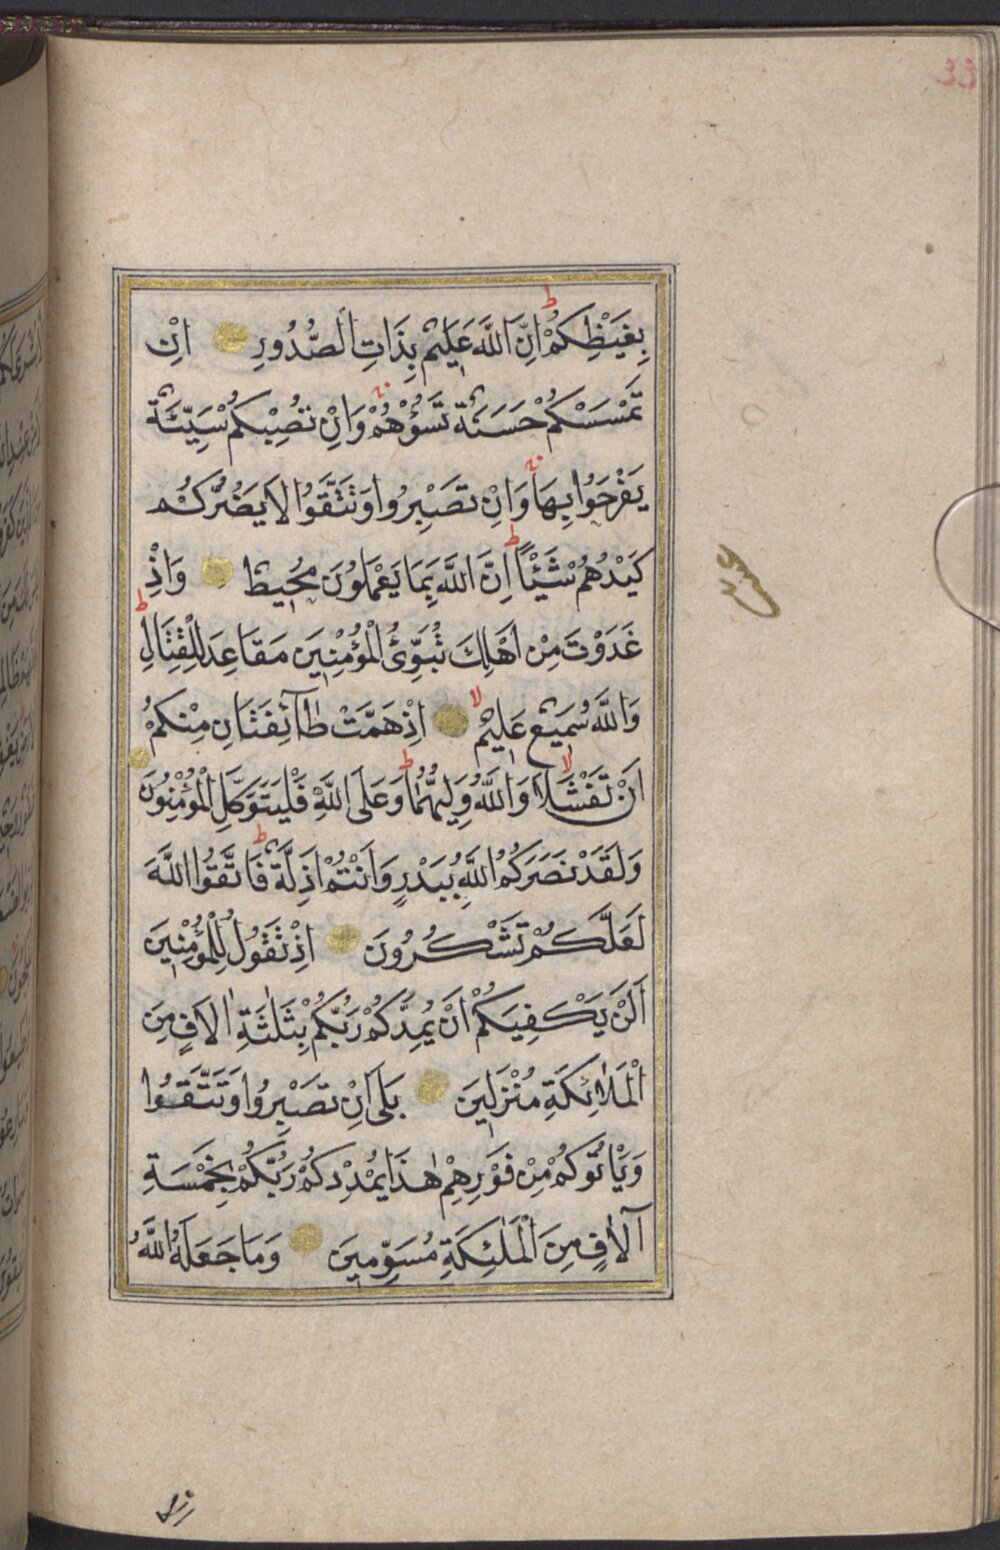 بِغَيْظِكُمْ اِنَّ اللَّهَ عَلِيمٌ بِذَاتِ الصُّدُورِ اِنْ
تَمْسَسْكُمْ حَسَنَةٌ تَسُؤْهُمْ وَاِنْ تُصِبْكُمْ سَيِّئَةٌ
يَفْرَحُوا بِهَا وَاِنْ تَصْبِرُوا وَتَتَّقُوا لَا يَضُرُّكُمْ
كَيْدُهُمْ شَيْئًا اِنَّ اللَّهَ بِمَا يَعْمَلُونَ مُحِيطٌ وَاِذْ
غَدَوْتَ مِنْ اَهْلِكَ تُبَوِّئُ الْمُؤْمِنِينَ مَقَاعِدَ لِلْقِتَالِ
وَاللَّهُ سَمِيعٌ عَلِيمٌ اِذْ هَمَّتْ طَآئِفَتَانِ مِنْكُمْ
اَنْ تَفْشَلَا وَاللَّهُ وَلِيُّهُمَا وَعَلَى اللَّهِ فَلْيَتَوَكَّلِ الْمُؤْمِنُونَ
وَلَقَدْ نَصَرَكُمُ اللَّهُ بِبَدْرٍ وَاَنْتُمْ اَذِلَّةٌ فَاتَّقُوا اللَّهَ
لَعَلَّكُمْ تَشْكُرُونَ اِذْ تَقُولُ لِلْمُؤْمِنِينَ
اَلَنْ يَكْفِيَكُمْ اَنْ يُمِدَّكُمْ رَبُّكُمْ بِثَلٰثَةِ اٰلَافٍ مِنَ
الْمَلَائِكَةِ مُنْزَلِينَ بَلَى اِنْ تَصْبِرُوا وَتَتَّقُوا
وَيَاْتُوكُمْ مِنْ فَوْرِهِمْ هٰذَا يُمْدِدْكُمْ رَبُّكُمْ بِخَمْسَةِ
آلَافٍ مِنَ الْمَلٰئِكَةِ مُسَوِّمِينَ وَمَا جَعَلَهُ اللَّهُ
اِلَّا